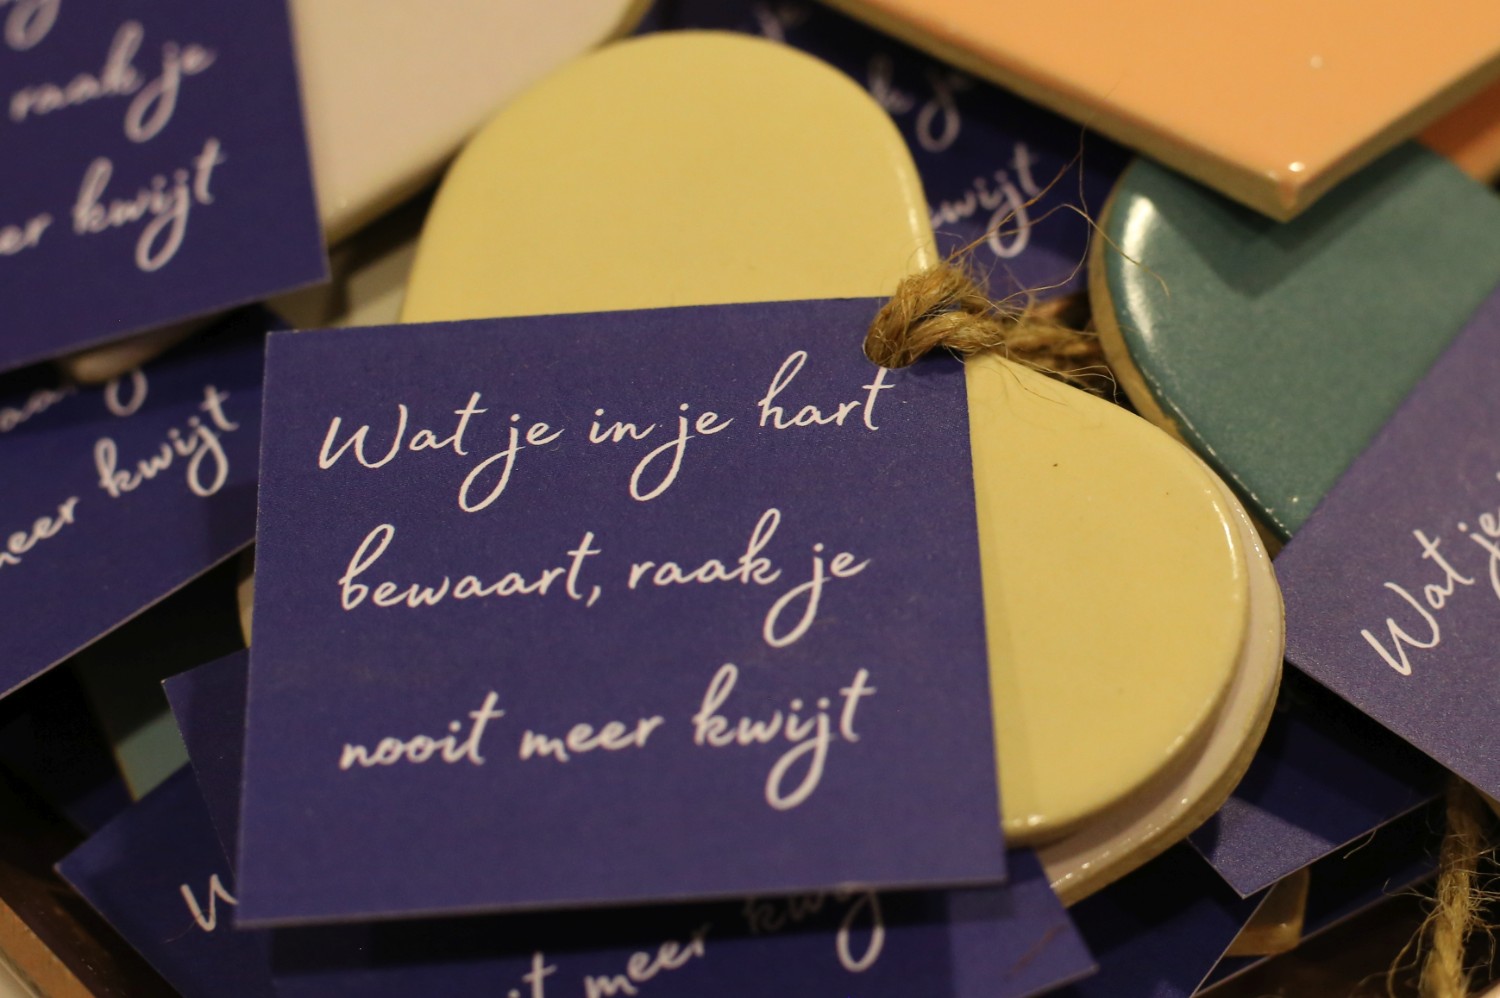 raak je
kwijt
kwijt
Wat je in je hart
bewaart, raak je
nooit meer kwijt
kwijt
meer kwijt
Wat je
meer kwijt